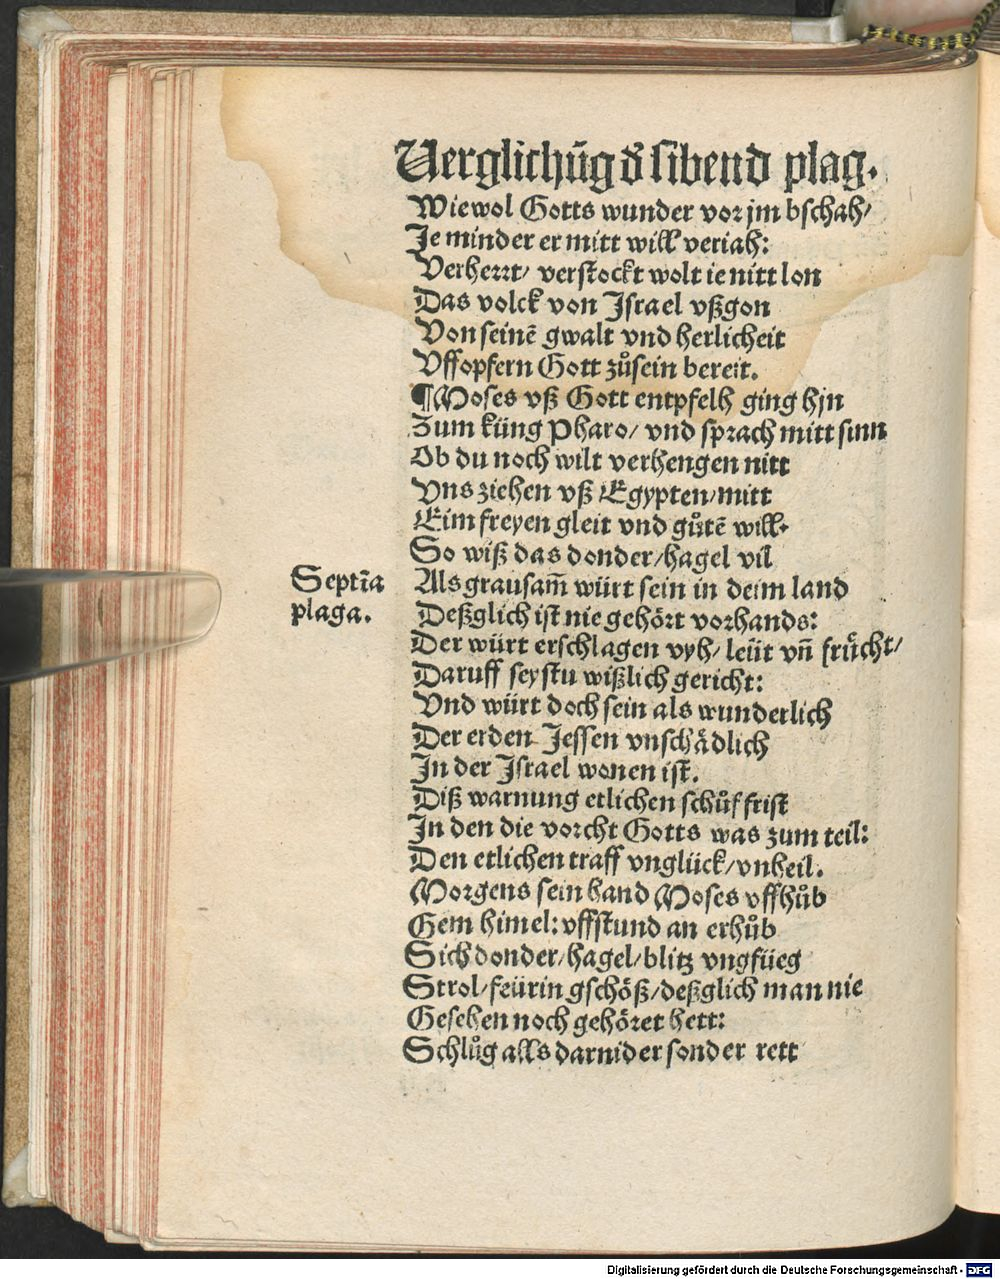 Verglichūg d̕ sibend plag.
Wiewol Gotts wunder vor jm bschah/
Je minder er mitt will veriah:
Verherrt/ verstockt wolt ie nitt lon
Das volck von Jsrael vßgon
Von seinē gwalt vnd herlicheit
Vffopfern Gott zůsein bereit.
¶Moses vß Gott entpfelh ging hjn
Zum küng Pharo/ vnd sprach mitt sinn
Ob du noch wilt verhengen nitt
Vns ziehen vß Egypten/mitt
Eim freyen gleit vnd gůtē will.
So wiß das donder/hagel vil
Septīa
plaga.
Als grausam̄ würt sein in deim land
Deßglich ist nie gehört vorhands:
Der würt erschlagen vyh/ leüt vn̄ frücht/
Daruff seystu wißlich gericht:
Vnd würt doch sein als wunderlich
Der erden Jessen vnschådlich
Jn der Jsrael wonen ist.
Diß warnung etlichen schůf frist
Jn den die vorcht Gotts was zum teil:
Den etlichen traff vnglück/vnheil.
Morgens sein hand Moses vffhůb
Gem himel: vffstund an erhůb
Sich donder/hagel/blitz vngfüeg
Strol/feürin gschöß/deßglich man nie
Gesehen noch gehöret hett:
Schlůg alls darnider sonder rett
Digitalisierung gefördert durch die Deutsche Forschungsgemeinschaft - DFG